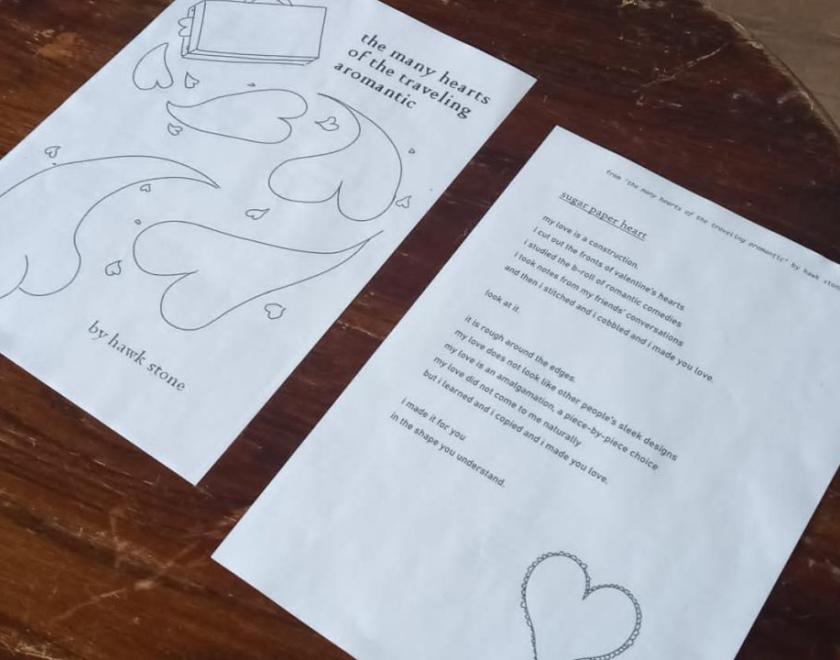 the many hearts
of the traveling
aromantic
by hawk stone
from "the many hearts of the traveling aromantic" by hawk ston
sugar paper heart
my love is a construction.
i cut out the fronts of valentine's hearts
i studied the b-roll of romantic comedies
i took notes from my friends' conversations
and then i stitched and i cobbled and i made you love.
look at it.
it is rough around the edges.
my love does not look like other people's sleek designs
my love is an amalgamation, a piece-by-piece choice
my love did not come to me naturally
but i learned and i copied and i made you love.
i made it for you
in the shape you understand.